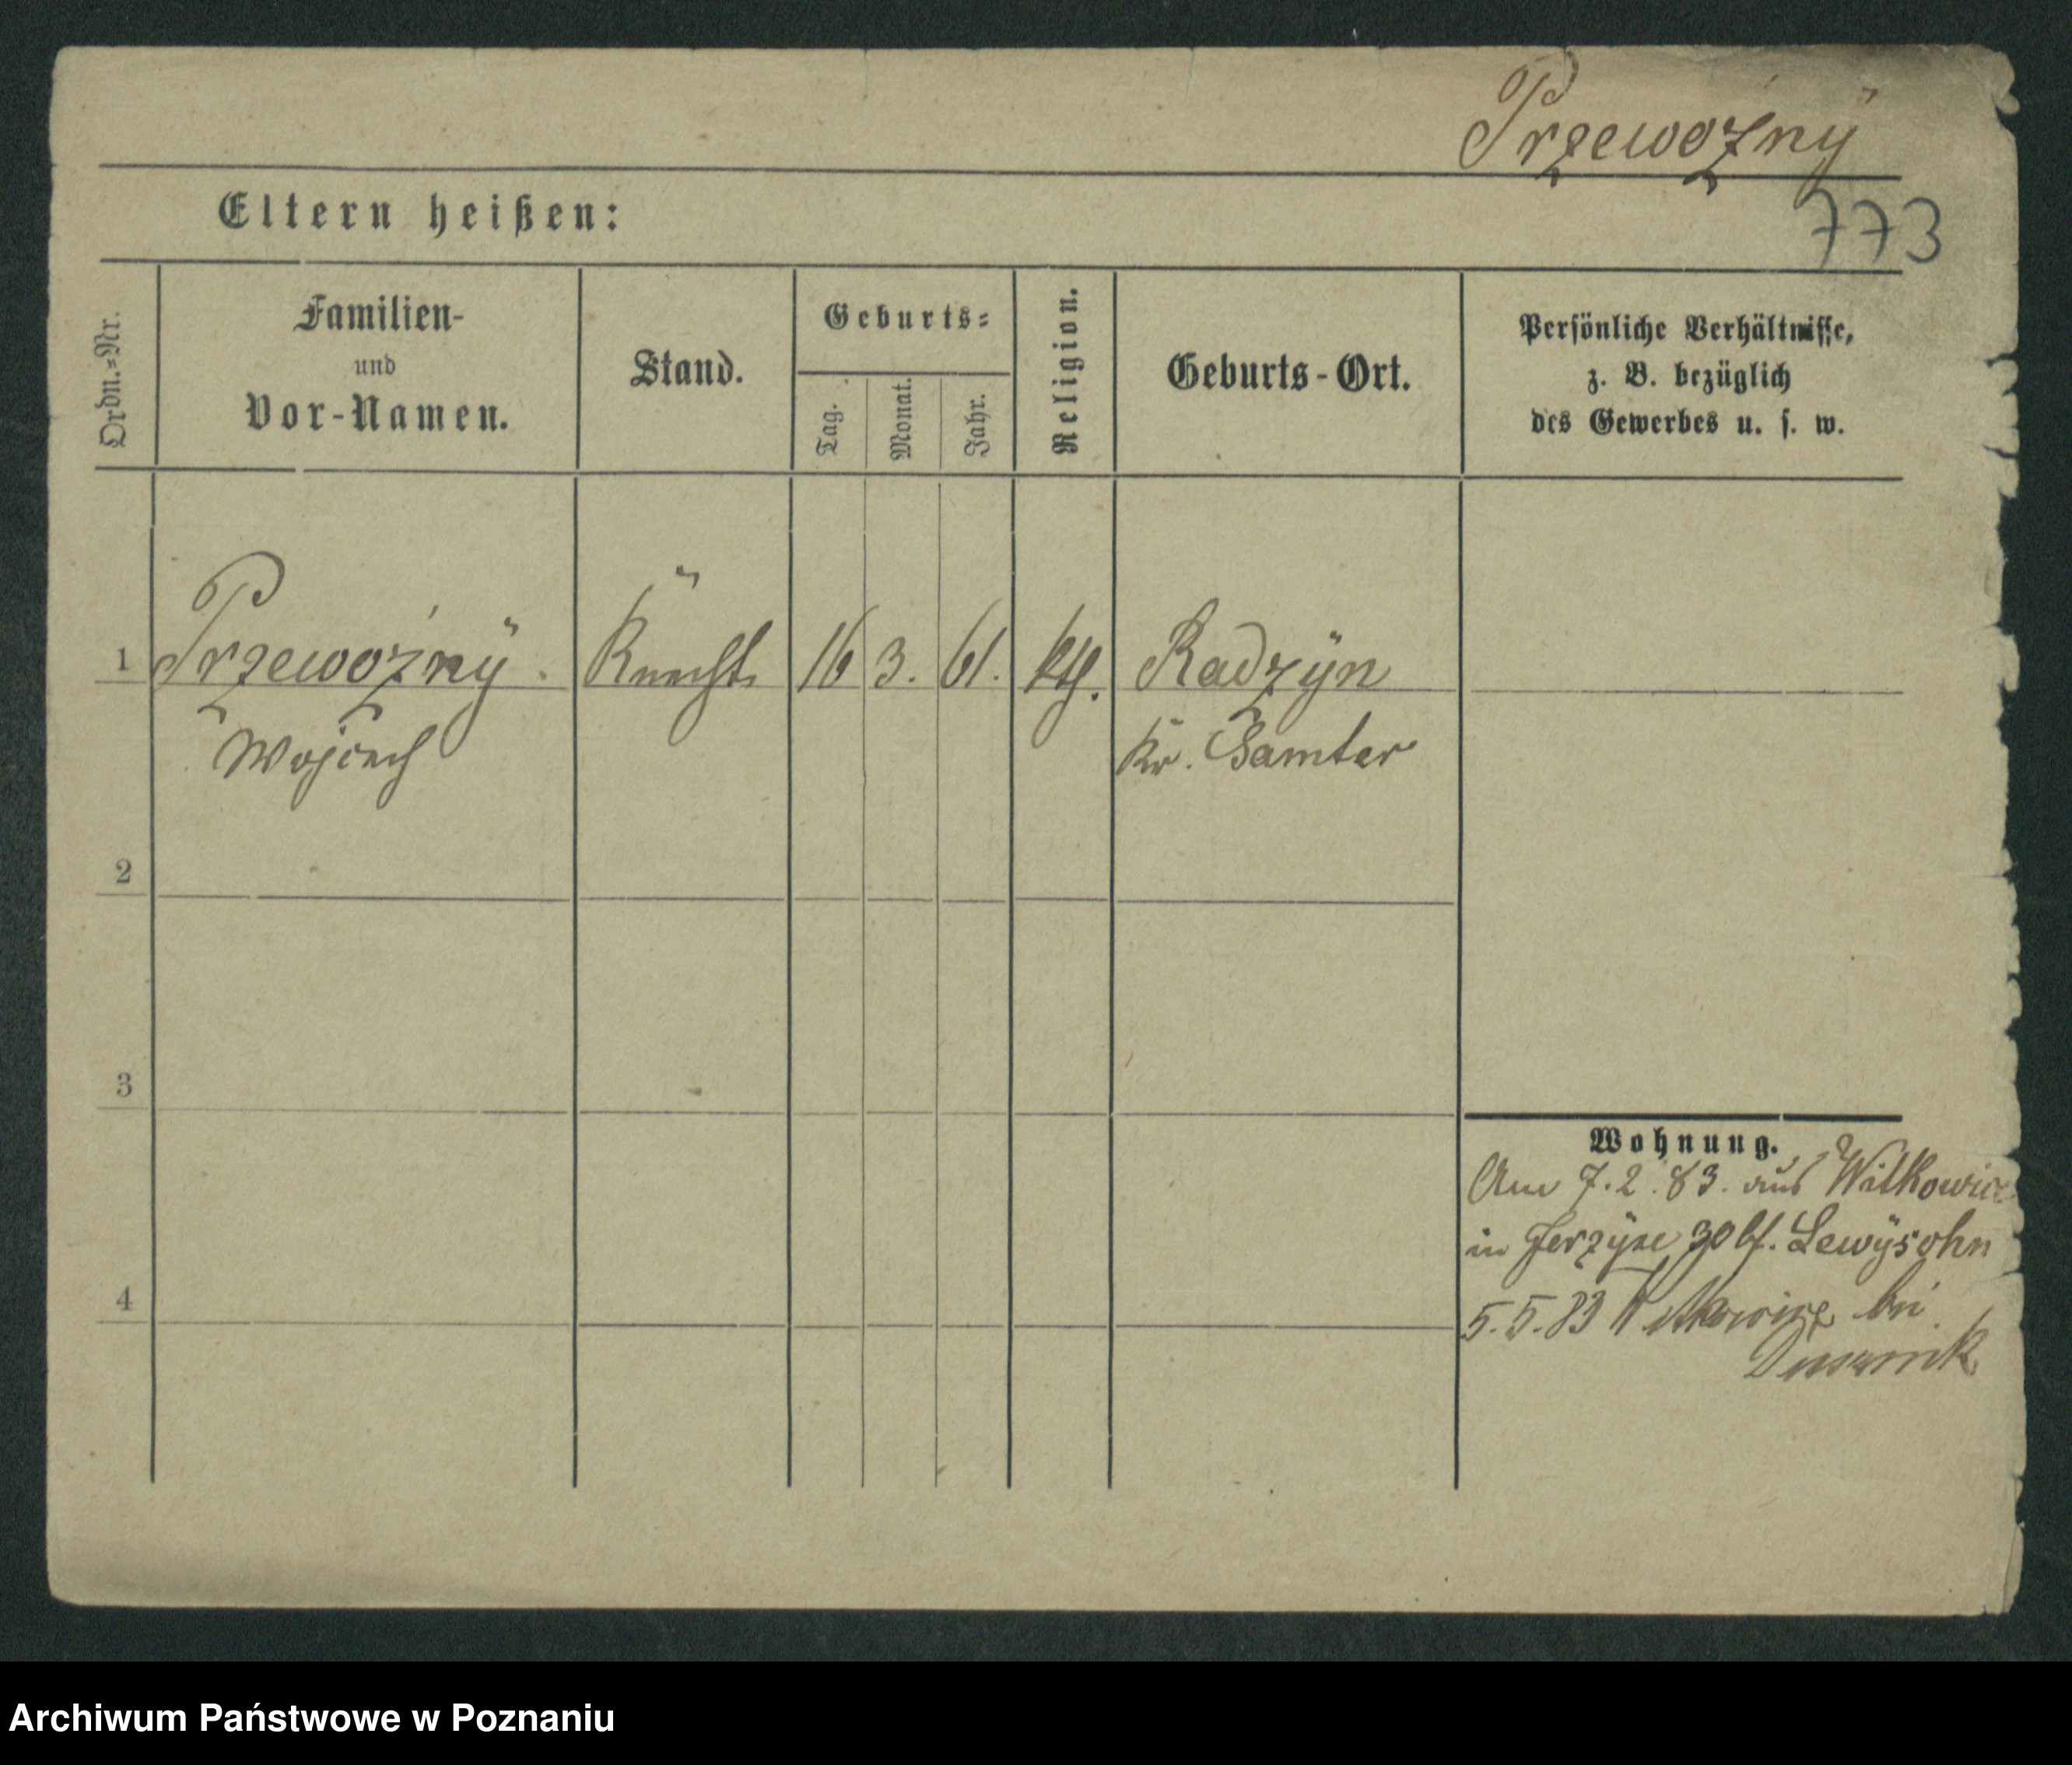 Przewoźnÿ
773
Eltern heißen:
Ordn.=Nr.
Familien-
und
Vor-Namen.
Stand.
Geburts=
Tag.
Monat.
Jahr.
Religion.
Geburts-Ort.
Persönliche Verhältnisse,
z. B. bezüglich
des Gewerbes u. s. w.
1 Przewoźnÿ. Knecht 16 3. 61. kth. Radzÿn
Wojciech Kr. Samter
2
3
4
Wohnung.
Am 7.2.83. aus Wilkowice
in Jerzÿce 30 bf. Lewÿsohn
5.5.83 Wilkowice bei
Dusznik
Archiwum Państwowe w Poznaniu